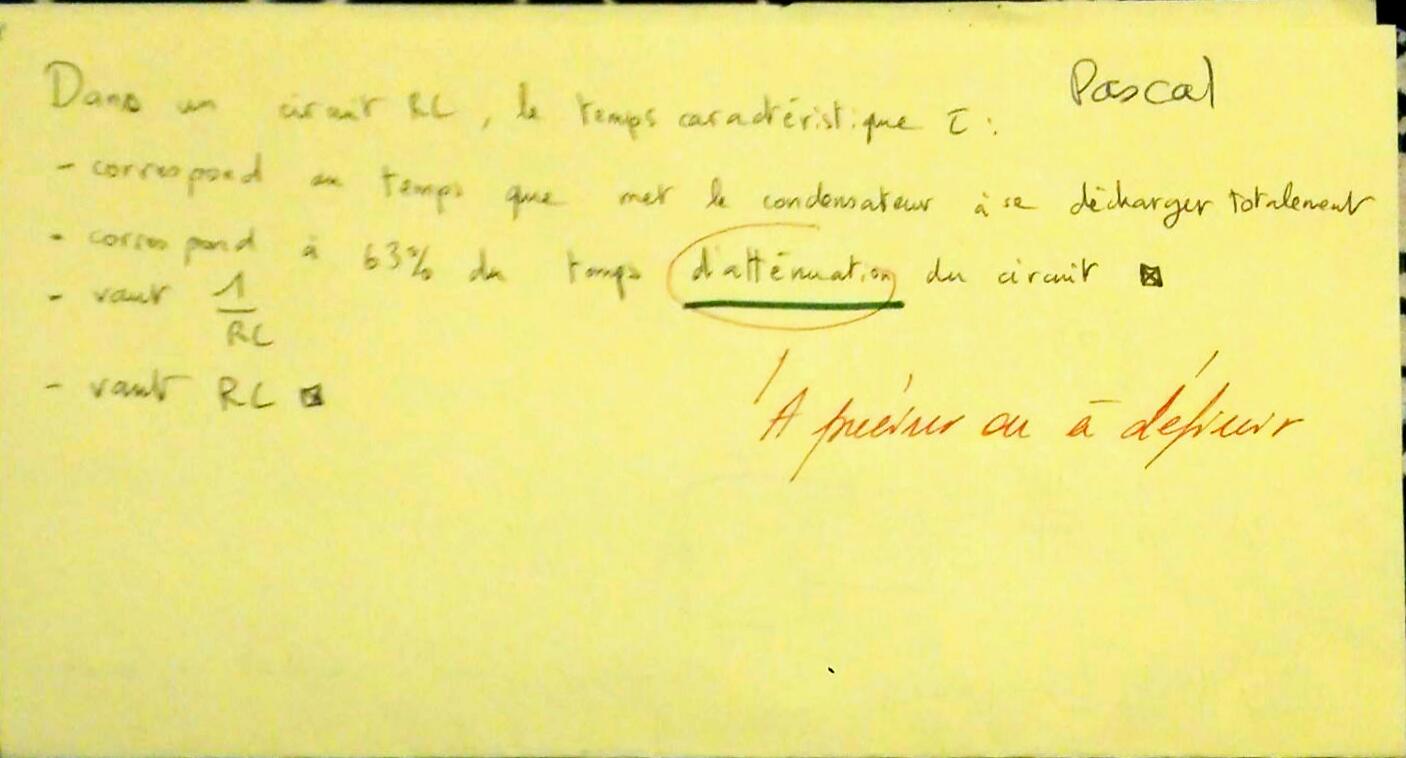 Pascal
Dans un circuit RC, le temps caractéristique τ :
- correspond au temps que met le condensateur à se décharger totalement
- correspond à 63% du temps d'atténuation du circuit ☒
- vaut 1/RC
- vaut RC ☒
A préciser ou à définir